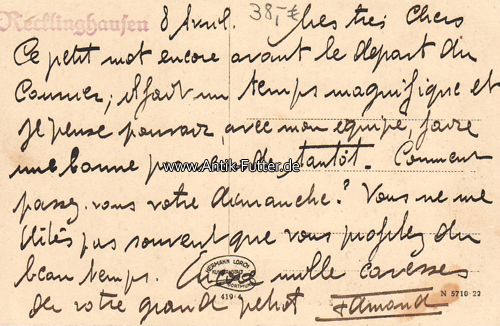 Recklinghausen
8 Avril. 38,-€ Mes très chers
Ce petit mot encore avant le départ du
Courrier; il fait un temps magnifique et
je pense pouvoir, avec mon équipe, faire
une bonne de tantôt. Comment
www.Antik-Futter.de
passez-vous votre dimanche? Vous ne me
dites pas souvent que vous profitez du
beau temps. mille caresses
HERMANN LORCH
KUNSTANSTALT
DORTMUND
419
N 5710-22
de votre grand petiot Armand